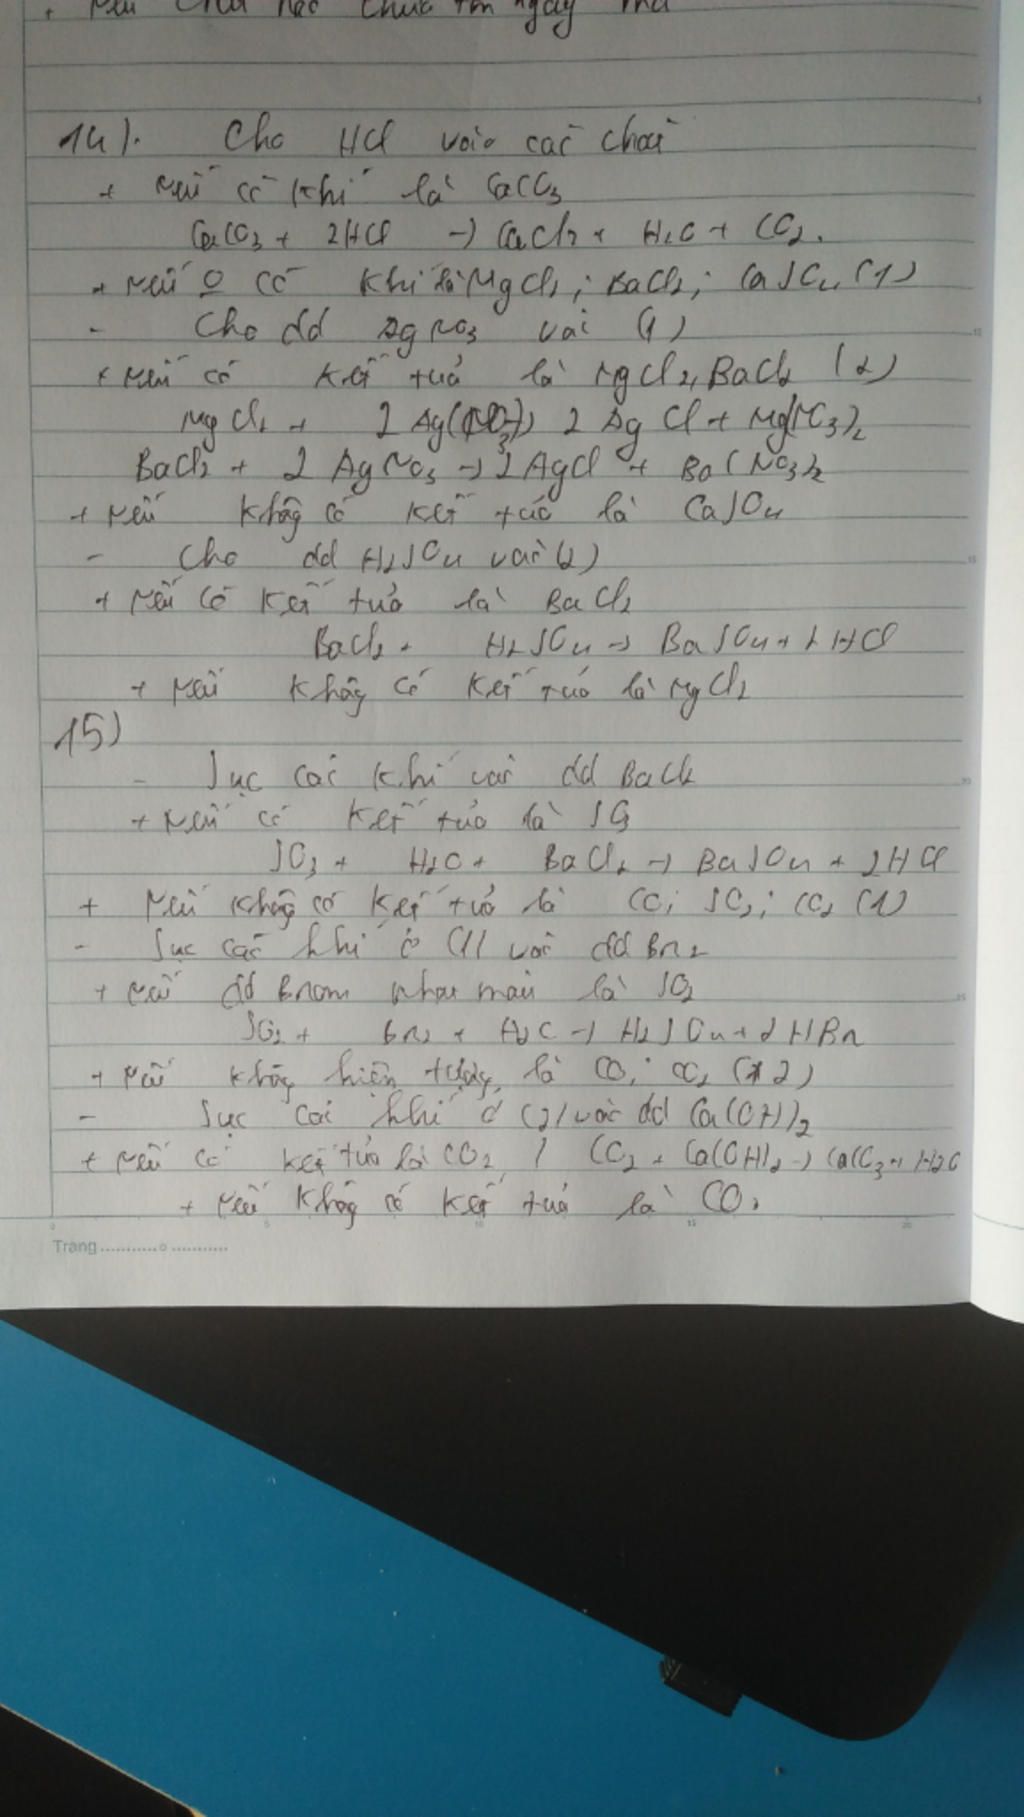 + Nếu chưa
14). Cho HCl vào các chất
+ Nếu có khí là CaCO3
CaCO3 + 2HCl -> CaCl2 + H2O + CO2.
+ Nếu 0 có khí là MgCl2; BaCl2; CaSO4 (1)
- Cho dd AgNO3 vào (1)
+ Nếu có kết tủa là MgCl2, BaCl2 (2)
MgCl2 + 2 Ag(NO3) 2 AgCl + Mg(NO3)2
BaCl2 + 2 AgNO3 -> 2 AgCl + Ba(NO3)2
+ Nếu không có kết tủa là CaSO4
- Cho dd H2SO4 vào (2)
+ Nếu có kết tủa là BaCl2
BaCl2 + H2SO4 -> BaSO4 + 2HCl
+ Nếu không có kết tủa là MgCl2
15)
- Sục các khí vào dd BaCl2
+ Nếu có kết tủa là SO3
SO3 + H2O + BaCl2 -> BaSO4 + 2HCl
+ Nếu không có kết tủa là CO; SO2; CO2 (1)
- Sục các khí ở (1) vào dd Br2
+ Nếu dd Brom nhạt màu là SO2
SO2 + Br2 + H2O -> H2SO4 + 2HBr
+ Nếu không hiện tượng là CO; CO2 (2)
- Sục các khí ở (2) vào dd Ca(OH)2
+ Nếu có kết tủa là CO2 / CO2 + Ca(OH)2 -> CaCO3 + H2O
+ Nếu không có kết tủa là CO.
Trang